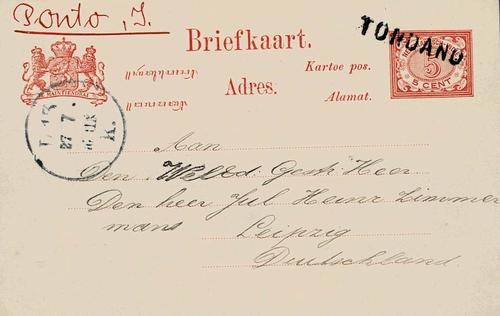 Ponto, J.
TONDANO
Briefkaart.
Kartoe pos.
5 CENT
Adres.
Alamat.
27 7
K.
Aan
Den WelEd. Gestr Heer
Den heer Jul Heinr Zimmer
mans Leipzig
Deutschland.